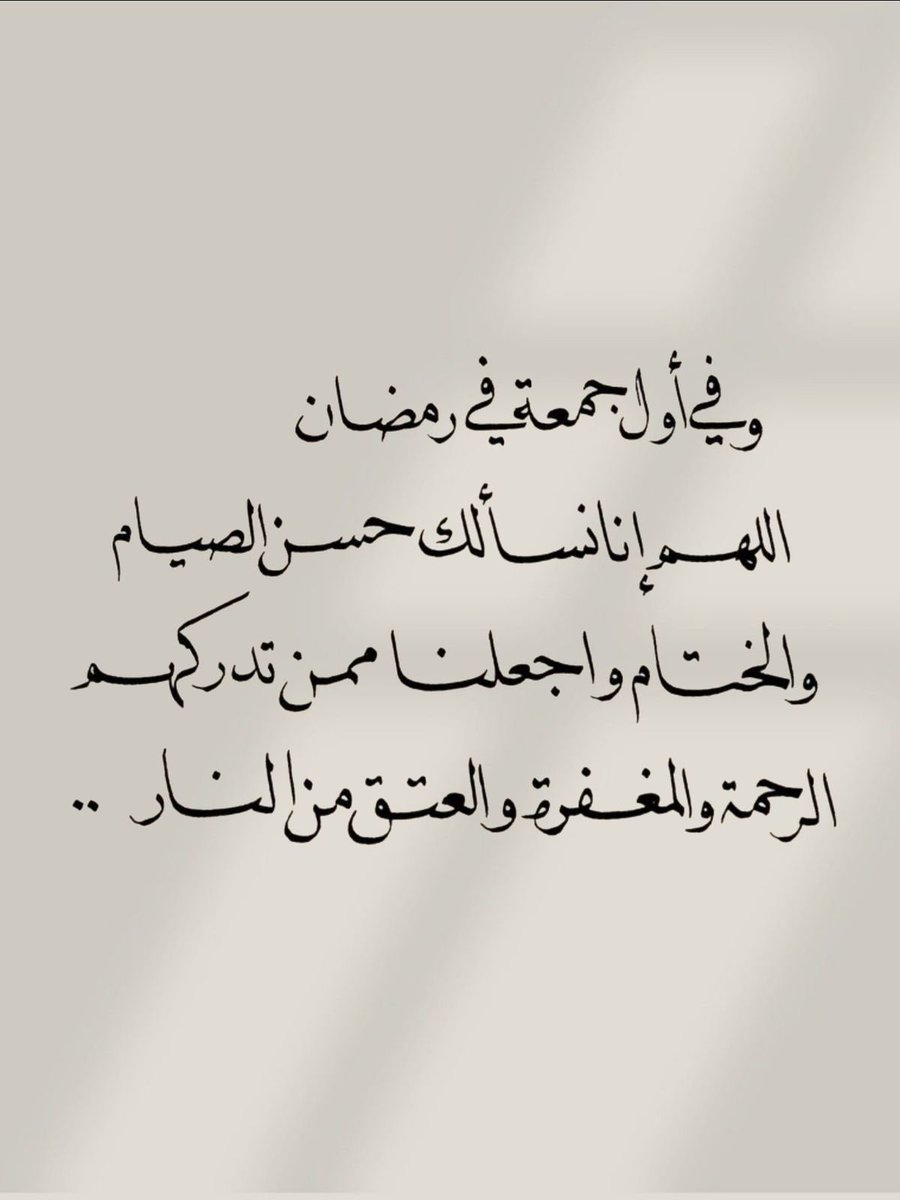 وفي أول جمعة في رمضان
اللهم إنا نسألك حسن الصيام
والختام واجعلنا ممن تدركهم
الرحمة والمغفرة والعتق من النار ..